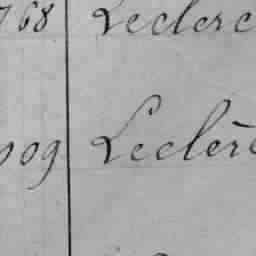 768 Leclerc
909 Leclerc